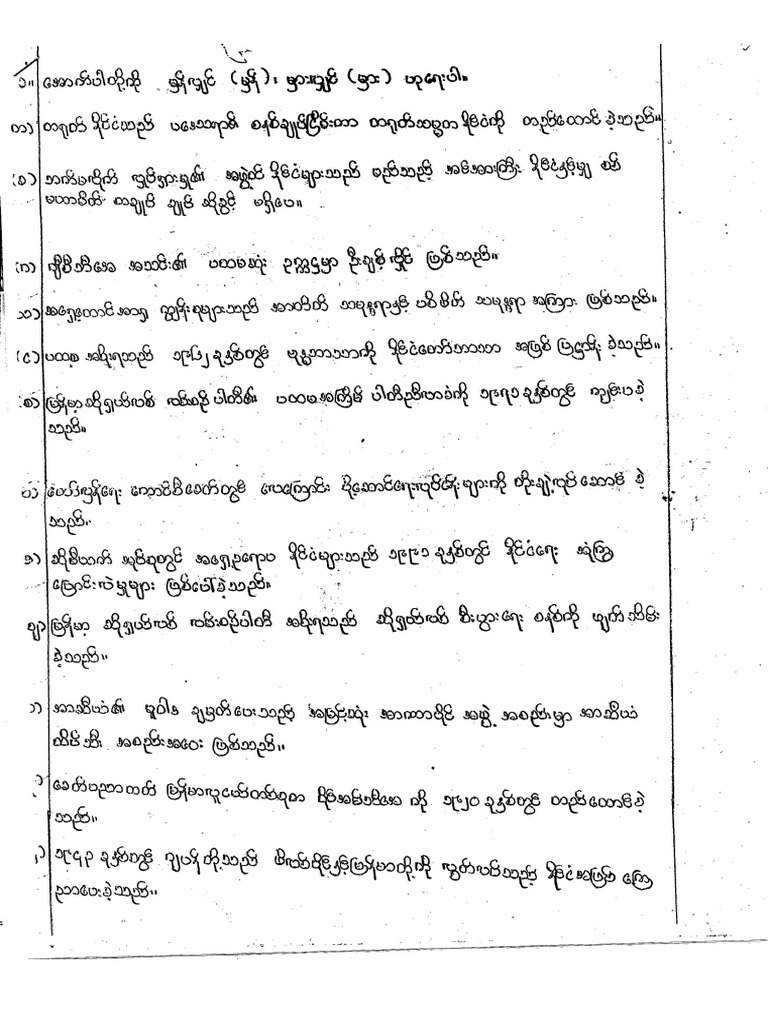 ၁။ အောက်ပါတို့ကို မှန်လျှင် (မှန်)၊ မှားလျှင် (မှား) ဟုရေးပါ။
(က) တရုတ် နိုင်ငံသည် ပဒေသရာဇ် စနစ်ချုပ်ငြိမ်းကာ တရုတ်သမ္မတ နိုင်ငံကို တည်ထောင် ခဲ့သည်။
(ခ) ဘက်မလိုက် လှုပ်ရှားမှု၏ အဖွဲ့ဝင် နိုင်ငံများသည် မည်သည့် အင်အားကြီး နိုင်ငံနှင့်မျှ စစ်
မဟာမိတ် စာချုပ် ချုပ် ဆိုခွင့် မရှိပေ။
(ဂ) ဂျီစီဘီအေ အသင်း၏ ပထမဆုံး ဥက္ကဋ္ဌမှာ ဦးချစ်လှိုင် ဖြစ်သည်။
(ဃ) အရှေ့တောင်အာရှ ကျွန်းစုများသည် အာတိတ် သမုဒ္ဒရာနှင့် ပစိဖိတ် သမုဒ္ဒရာ အကြား ဖြစ်သည်။
(င) ပထစ အစိုးရသည် ၁၉၆၂ ခုနှစ်တွင် ဗုဒ္ဓဘာသာကို နိုင်ငံတော်ဘာသာ အဖြစ် ပြဋ္ဌာန်း ခဲ့သည်။
(စ) မြန်မာ့ဆိုရှယ်လစ် လမ်းစဉ်ပါတီ၏ ပထမအကြိမ် ပါတီညီလာခံကို ၁၉၇၁ ခုနှစ်တွင် ကျင်းပခဲ့
သည်။
တွင် လေကြောင်း ပို့ဆောင်ရေးလုပ်ငန်းများကို တိုးချဲ့လုပ်ဆောင် ခဲ့
သည်။
ဇ) ဆိုဗီယက် အရှေ့ဥရောပ နိုင်ငံများသည် ၁၉၉၁ ခုနှစ်တွင် နိုင်ငံရေး
ပြောင်းလဲမှုများ ဖြစ်ပေါ်ခဲ့သည်။
ဈ) မြန်မာ့ ဆိုရှယ်လစ် လမ်းစဉ်ပါတီ အစိုးရသည် ဆိုရှယ်လစ် စီးပွားရေး စနစ်ကို ဖျက်သိမ်း
ခဲ့သည်။
ည) အာဆီယံ၏ မူဝါဒ ချမှတ်ပေးသည့် အမြင့်ဆုံး အာဏာပိုင် အဖွဲ့ အစည်းမှာ အာဆီယံ
ထိပ်သီး အစည်းအဝေး ဖြစ်သည်။
ခေတ်ပညာတတ် မြန်မာလူငယ် ကို ၁၉၂၀ ခုနှစ်တွင် တည်ထောင်ခဲ့
သည်။
၁၉၄၃ ခုနှစ်တွင် ဂျပန်တို့သည် ဖိလစ်ပိုင်နှင့်မြန်မာတို့ကို လွတ်လပ်သည့် နိုင်ငံအဖြစ် ကြေ
ညာပေးခဲ့သည်။